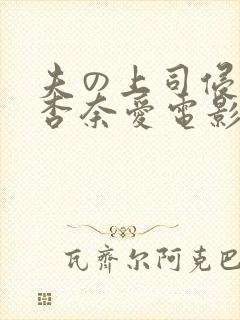 夫の上司侵
杏奈爱電影
瓦齊尔阿克巴